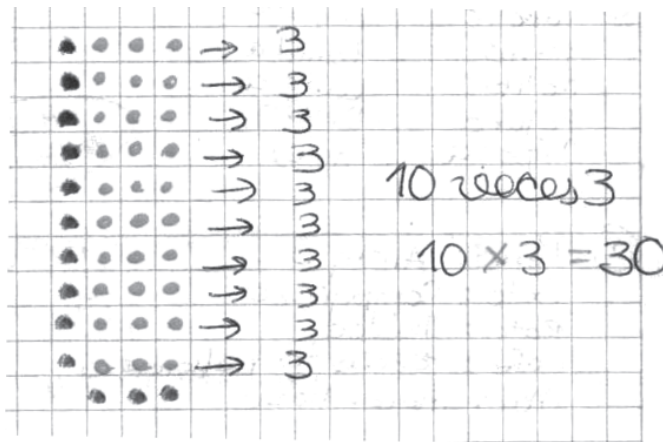 → 3
→ 3
→ 3
→ 3
→ 3
→ 3
→ 3
→ 3
→ 3
→ 3
10 veces 3
10 × 3 = 30